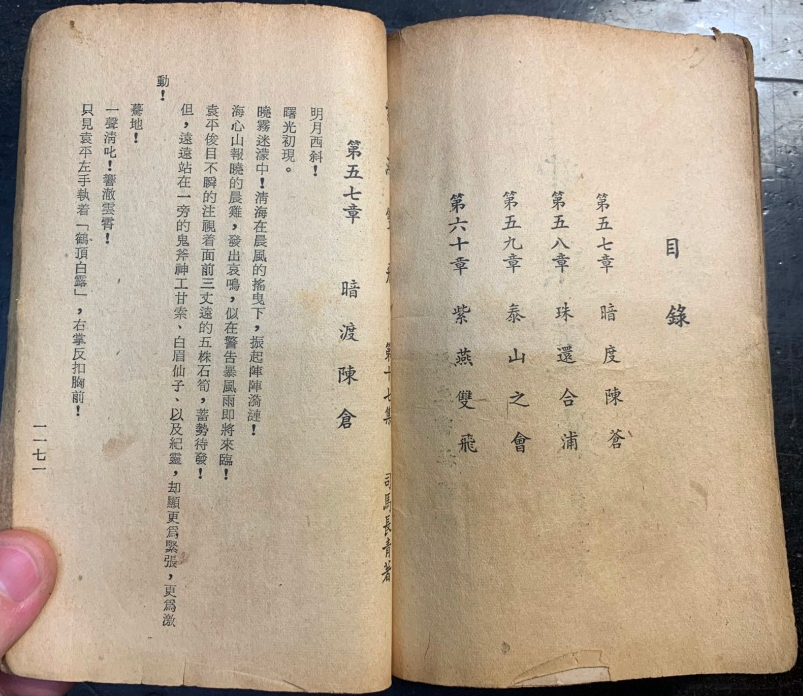 目錄
第五七章 暗度陳蒼
第五八章 珠還合浦
第五九章 泰山之會
第六十章 紫燕雙飛
第十七集 司馬長青著
第五七章 暗渡陳倉
明月西斜！
曙光初現。
曉霧迷濛中！清海在晨風的搖曳下，振起陣陣漪漣！
海心山報曉的晨雞，發出哀鳴，似在警告暴風雨即將來臨！
袁平俊目不瞬的注視着面前三丈遠的五株石筍，蓄勢待發！
但，遠遠站在一旁的鬼斧神工甘索、白眉仙子、以及紀靈，却顯更爲緊張，更爲激
動！
驀地！
一聲清叱！響澈雲霄！
只見袁平左手執着「鶴頂白露」，右掌反扣胸前！
一一七一